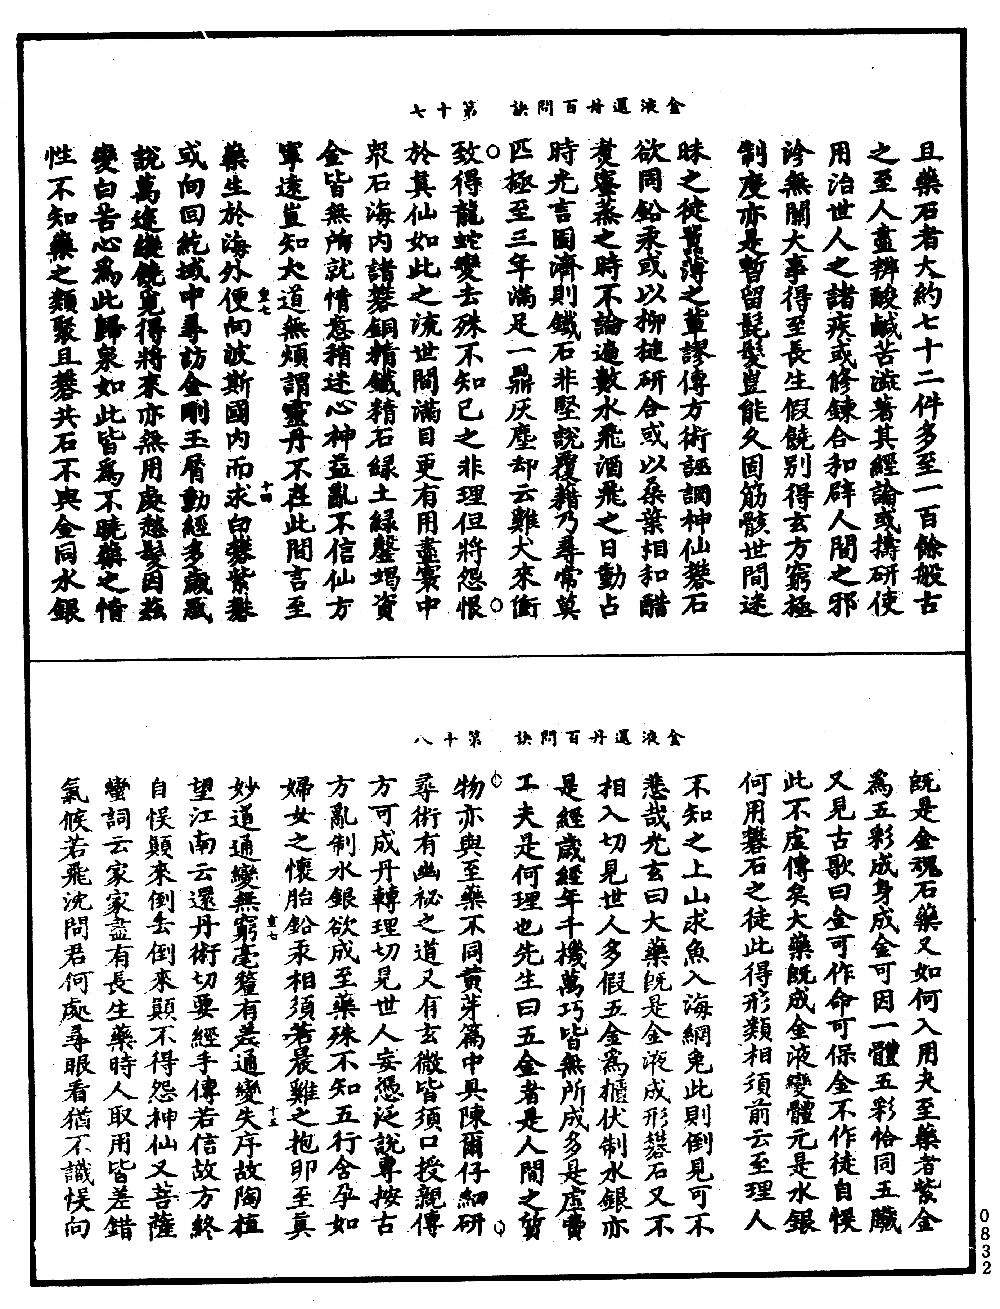 金液還丹百問訣　第十七
且藥石者大約七十二件多至一百餘般古
之至人盡辨酸鹹苦澁著其經論或擣研使
用治世人之諸疾或修鍊合和辟人間之邪
沴無關大事得至長生假饒别得玄方窮極
制度亦是暫留髭髮豈能久固筋骸世間迷
昧之徒囂薄之輩謬傳方術誣誷神仙礬石
欲同鉛汞或以柳槌研合或以桑葉相和醋
煑蜜蒸之時不論遍數水飛酒飛之日動占
時光言固濟則鐵石非堅說覆藉乃尋常莫
匹極至三年滿足一鼎灰塵却云雞犬來衝
致得龍蛇變去殊不知已之非理但將怨恨
於真仙如此之流世間滿目更有用盡囊中
衆石海内諸礬銅精鐵精石緑土緑罄竭資
金皆無所就情意稍迷心神益亂不信仙方
寧遠豈知大道無煩謂靈丹不在此間言至
藥生於海外便向波斯國内而求白礬紫礬
或向回紇域中尋訪金剛玉屑動經多歲虛
說萬途縱饒覓得將來亦無用處愁髮因兹
變白苦心爲此歸泉如此皆爲不曉藥之情
性不知藥之類聚且礬共石不與金同水銀
重七
十四
金液還丹百問訣　第十八
旣是金魂石藥又如何入用夫至藥者紫金
爲五彩成身成金可因一體五彩恰同五臟
又見古歌曰金可作命可保金不作徒自悮
此不虛傳矣大藥旣成金液變體元是水銀
何用礬石之徒此得形類相須前云至理人
不知之上山求魚入海網兔此則倒見可不
悲哉光玄曰大藥旣是金液成形礬石又不
相入切見世人多假五金爲櫃伏制水銀亦
是經歲經年千機萬巧皆無所成多是虛費
工夫是何理也先生曰五金者是人間之質
物亦與至藥不同黄芽篇中具陳爾仔細研
尋術有幽秘之道又有玄微皆須口授親傳
方可成丹轉理切見世人妄憑泛說專按古
方亂制水銀欲成至藥殊不知五行含孕如
婦女之懷胎鉛汞相須若晨雞之抱卵至真
妙道通變無窮毫釐有差通變失序故陶植
望江南云還丹術切要經手傳若信故方終
自悮顛來倒去倒來顛不得怨神仙又菩薩
蠻詞云家家盡有長生藥時人取用皆差錯
氣候若飛沈問君何處尋眼看猶不識悮向
重七
十五
0832